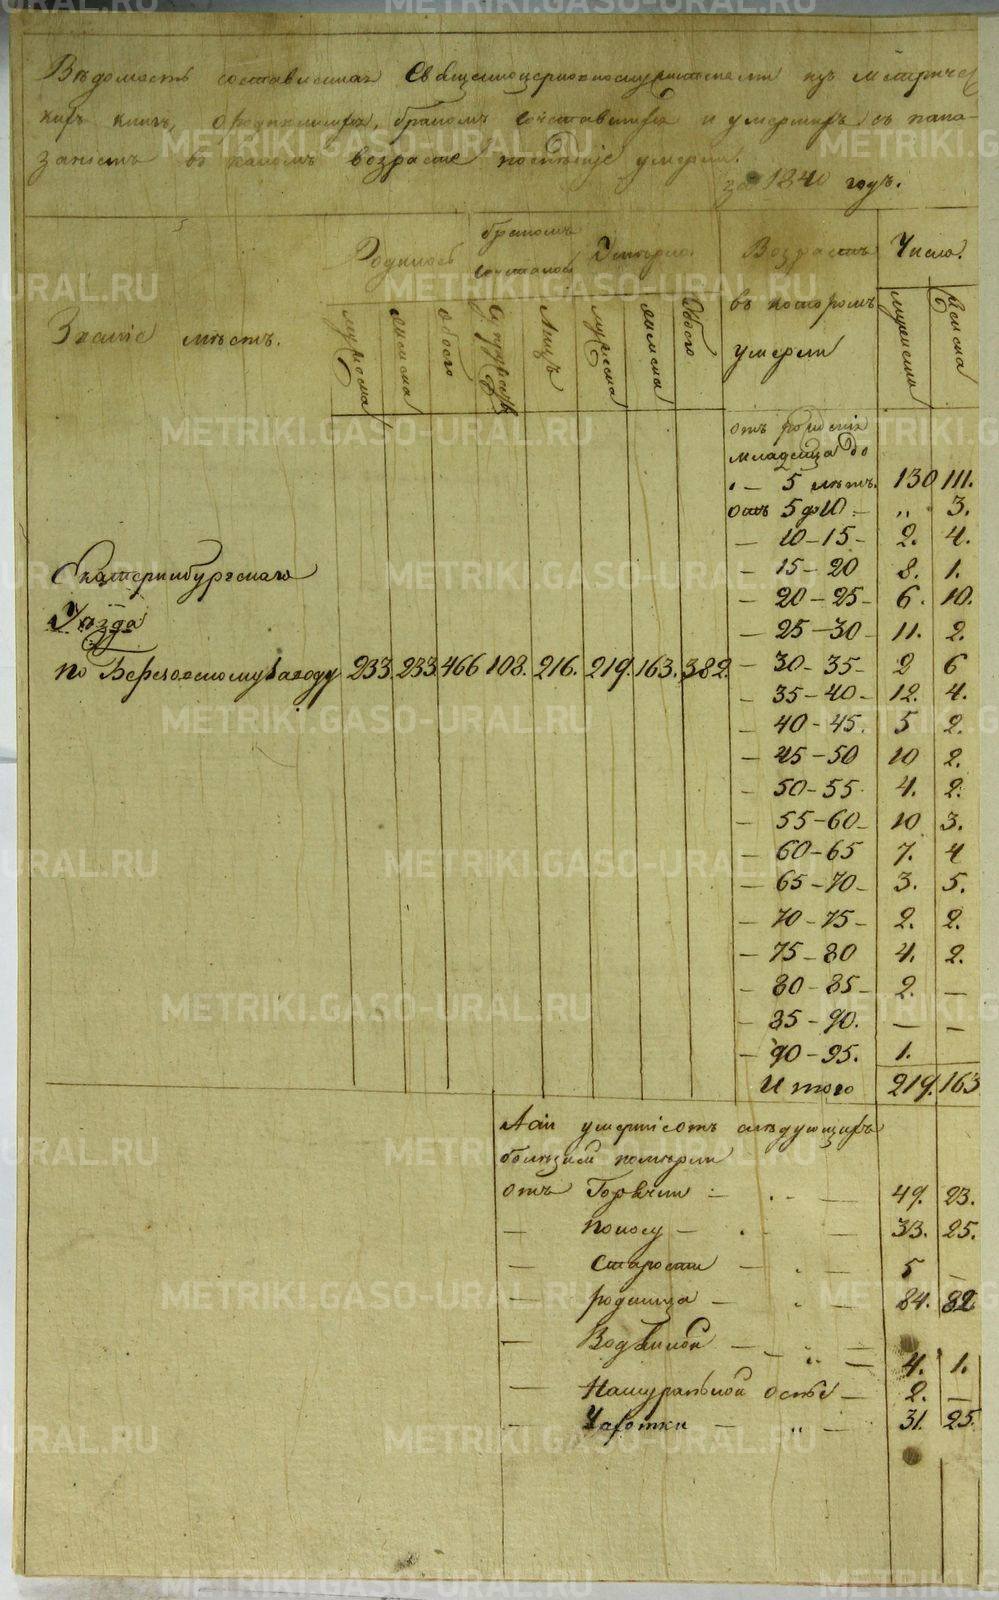 Вѣдомость составленная Священноцерковнослужителями изъ метричес
кихъ книгъ, о родившихся, бракомъ сочетавшихся и умершихъ съ пака-
заніемъ въ какомъ возрасте послѣдніе умерли.
за 1840 годъ.
Званіе мѣстъ.
Родилось
бракомъ
сочеталось
Умерло.
Возрастъ
въ которомъ
умерли
Число.
мужеска
женска
обоего
Супружествъ
Лицъ
мужеска
женска
Обоего
мужеска
женска
отъ рожденія
младенца до
- 5 лѣтъ. 130 111.
отъ 5 до 10 - „ 3.
- 10-15- 2. 4.
- 15-20 8. 1.
- 20-25- 6. 10.
- 25-30- 11. 2.
- 30-35- 2 6
- 35-40- 12. 4.
- 40-45. 5 2.
- 45-50 10 2.
- 50-55 4. 2.
- 55-60- 10 3.
- 60-65 7. 4
- 65-70- 3. 5.
- 70-75- 2. 2.
- 75-80 4. 2.
- 80-85- 2. -
- 85-90. - -
- 90-95. 1.
Итого 219. 163
Екатеринбургскаго
Уѣзда
по Березовскому Заводу 233. 233. 466 108. 216. 219. 163. 382.
умершіе отъ слѣдующихъ
болѣзней померли
отъ Горячки - 49. 23.
- поносу - 33. 25.
- Старости - 5 -
- родимца - 84. 82
- Водяной - 4. 1.
- Натуральной оспы - 2. -
- Чахотки - 31. 25.
METRIKI.GASO-URAL.RU